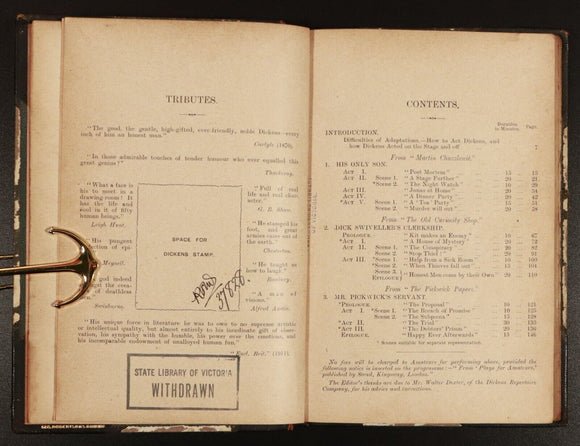 TRIBUTES.
"The good, the gentle, high-gifted, ever-friendly, noble Dickens—every
inch of him an honest man."
Carlyle (1870).
"In those admirable touches of tender humour who ever equalled this
great genius?"
Thackeray.
"What a face is
his to meet in a
drawing room! It
has the life and
soul in it of fifty
human beings."
Leigh Hunt.
pungent
of epi-
Meynell.
god indeed
the crea-
of deathless
Swinburne.
SPACE FOR
DICKENS STAMP.
"Full of real
life and real char-
acter."
G. B. Shaw.
"He stamped his
foot, and great
armies came out of
the earth."
Chesterton.
"He taught us
how to laugh."
"A man of
visions."
Alfred Austin.
"His unique force in literature he was to owe to no supreme artistic
or intellectual quality, but almost entirely to his inordinate gift of obser-
vation, his sympathy with the humble, his power over the emotions, and
his incomparable endowment of unalloyed human fun."
"Encl. Brit." (1911).
STATE LIBRARY OF VICTORIA
WITHDRAWN
CONTENTS.
Duration in Minutes. Page.
INTRODUCTION.
Difficulties of Adaptations.—How to Act Dickens, and
how Dickens Acted on the Stage and off 7
From "Martin Chuzzlewit."
1. HIS ONLY SON.
Act I. "Post Mortem" 15 13
Act II. Scene 1. "A Stage Further" 20 21
*Scene 2. "The Night Watch" 10 29
Act III. "Jonas at Home" 20 34
Act IV. "A Dinner Party" 20 42
*Act V. Scene 1. "A 'Tea' Party" 15 51
Scene 2. "Murder will out" 20 58
From "The Old Curiosity Shop."
2. DICK SWIVELLER'S CLERKSHIP.
Prologue. "Kit makes an Enemy" 10 67
*Act I. "A House of Mystery" 20 72
Act II. Scene 1. "The Conspiracy" 20 82
Scene 2. "Stop Thief!" 20 91
Act III. *Scene 1. "Help from a Sick Room" 10 98
Scene 2. "When Thieves fall out" 15 104
Scene 3. Epilogue "Honest Men come by their Own" 20 110
From "The Pickwick Papers."
3. MR. PICKWICK'S SERVANT.
*Prologue. "The Proposal" 10 121
*Act I. Scene 1. "The Breach of Promise" 10 125
Scene 2. "The Subpœna" 15 128
*Act II. "The Trial" 30 135
Act III. "The Debtors' Prison" 20 136
Epilogue. "Happy Ever Afterwards" 15 146
* Scenes suitable for separate representation.
No fees will be charged to Amateurs for performing above, provided the
following notice is inserted on the programme:—"From 'Plays for Amateurs,'
published by Stead, Kingsway, London."
The Editor's thanks are due to Mr. Walter Dexter, of the Dickens Repertoire
Company, for his advice and corrections.